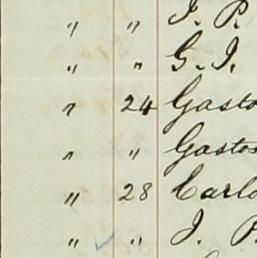 " " J. P.
" " G. I.
" 24 Gasto
" " Gasto
" 28 Carlo
" " J. P.